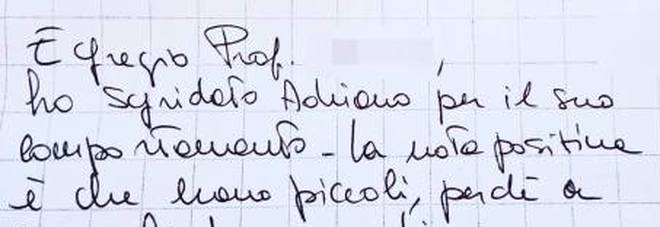 Egregio Prof. ,
ho sgridato Adriano per il suo
comportamento - la nota positiva
è che erano piccoli, perché a